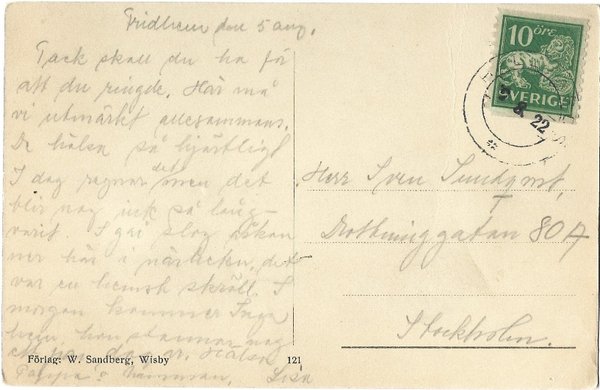 Fridhem den 5 aug.
Tack skall du ha för
att du ringde. Här må
vi utmärkt allesammans.
De hälsa så hjärtligt
I dag regnar det men det
blir nog inte så lång-
varit. I går slog åskan
ner här i närheten, det
var en hemsk skräll. I
morgon kommer Inga
hem, hon stannar nog
Hälsa
Pappa o Lisa
Förlag: W. Sandberg, Wisby
121
10 ÖRE
SVERIGE
5 8 22
Herr Sven Sundqvist,
Drottninggatan 80 A
Stockholm.